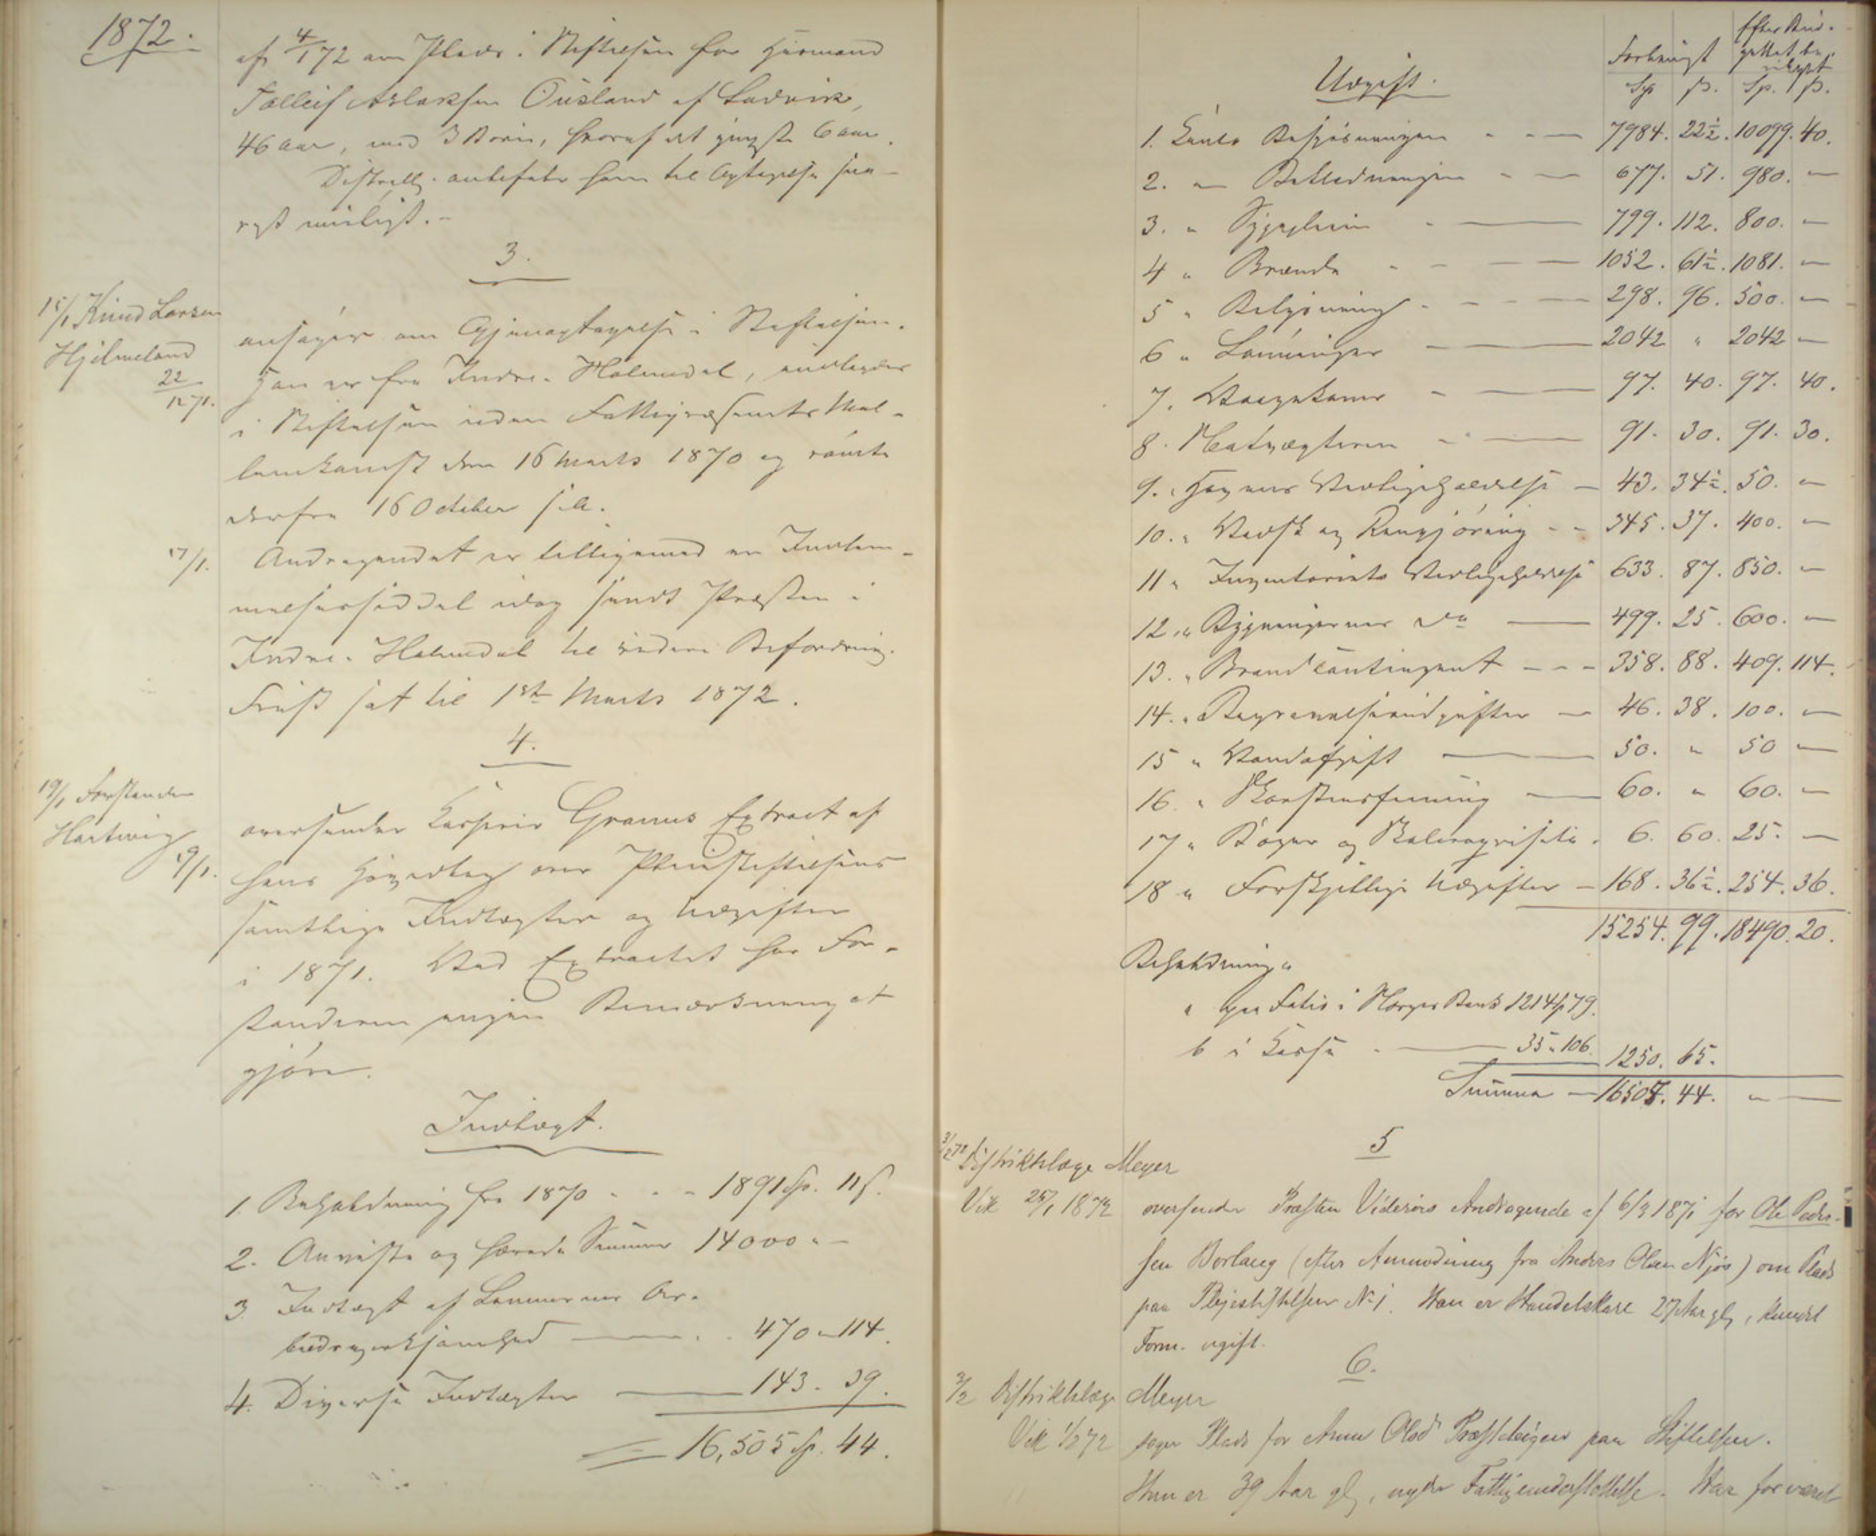 1872.
af 4/1 72 om Plads i Stiftelsen for Huusmand
Tølleif Aslaksen Ousland af Ladvik,
46 aar, med 3 Børn, hvoraf det yngste 6 aar.
Distrl. anbefaler ham til Optagelse snarest muligt.-
3.
15/1 Knud Larsen
Hjelmeland
22/12 71.
ansøger om Gjenoptagelse i Stiftelsen.
Han er fra Indre-Holmedal, indlagdes
i Stiftelsen uden Fattigvæsenets Mel-
lemkomst den 16 Marts 1870 og rømte
derfra 16 October s.A.
17/1.
Andragendet er tilligemed en Indlem-
melsesseddel idag sendt Præsten i
Indre-Holmedal til videre Befordring.
Frist sat til 1ste Marts 1872.
4.
19/1 Forstander
Hartwig
19/1.
oversender Kasserer Grams Extract af
hans Hovedbog over Pleiestiftelsens
samtlige Indtægter og Udgifter
i 1871. Ved Extractet har For-
standeren ingen Bemærkning at
gjøre.
Indtægt.
1. Beholdning fra 1870 - - - 1891 Sp. 11 ß.
2. Anviste og hævede Summer 14000 " -
3 Indtægt af Lemmernes Ar-
beidsvirksomhed - - 470 " 114.
4. Diverse Indtægter - 143. 39.
= 16,505 Sp. 44.
Udgift.
Forbrugt
Efter Bud-
gettet be-
vilget
Sp ß. Sp. ß.
1. Conto Bespisningen - - - 7984. 22½. 10099. 40.
2. " Beklædningen - - 677. 51. 980. "
3. " Sygepleien - 799. 112. 800. "
4 " Brænde - - - 1052. 61½. 1081. "
5 " Belysning - - - 298. 96. 500. "
6 " Lønninger - 2042 " 2042 "
7. Vaagekoner - 97. 40. 97. 40.
8. Natvægteren - 91. 30. 91. 30.
9. " Havens Vedligeholdelse - 43. 34½. 50. "
10. " Vadsk og Rengjøring - - 345. 37. 400. "
11 " Inventariets Vedligeholdelse 633. 87. 850. "
12. " Bygningernes do - 499. 25. 600. "
13. " Brandcontingent - - - 358. 88. 409. 114.
14. " Begravelsesudgifter - 46. 38. 100. "
15 " Vandafgift - 50. " 50 "
16. " Skorstensfeining - 60. " 60. "
17 " Bøger og Skolerequisita. 6. 60. 25. "
18 " Forskjellige Udgifter - 168. 36½. 254. 36.
15254. 99. 18490. 20.
Beholdning "
a paa Folio i Norges Bank 1214 " 79.
b i Kassa - 35 " 106. 1250. 65.
Summa - 16505. 44. "
5
3/2 72 Distriktslæge Meyer
Vik 25/1 1872
oversender Præsten Viderøes Andragende af 6/2 1871 for Ole Peder-
sen Borlaug (efter Anmodning fra Anders Olsen Njøs) om Plads
paa Plejestiftelsen No 1. Han er Handelskarl 27 Aar gl, knudet
Form. ugift.
6.
3/2 Distriktslæge Meyer
Vik 1/2 72
søger Plads for Anne Olsd Præstehougen paa Stiftelsen.
Hun er 39 Aar gl, nyder Fattigunderstøttelse. Har før været